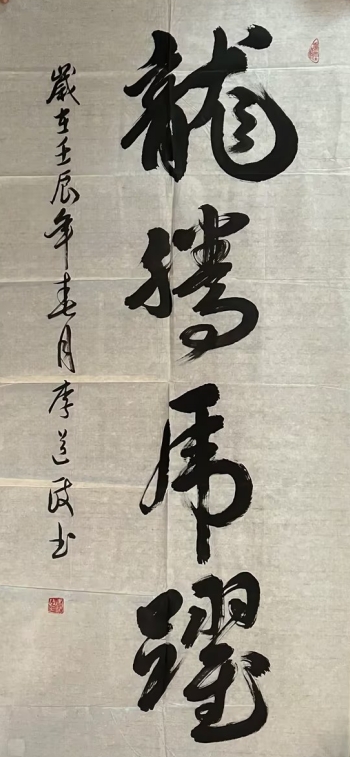 龍騰虎躍
歲在壬辰年春月李道政书